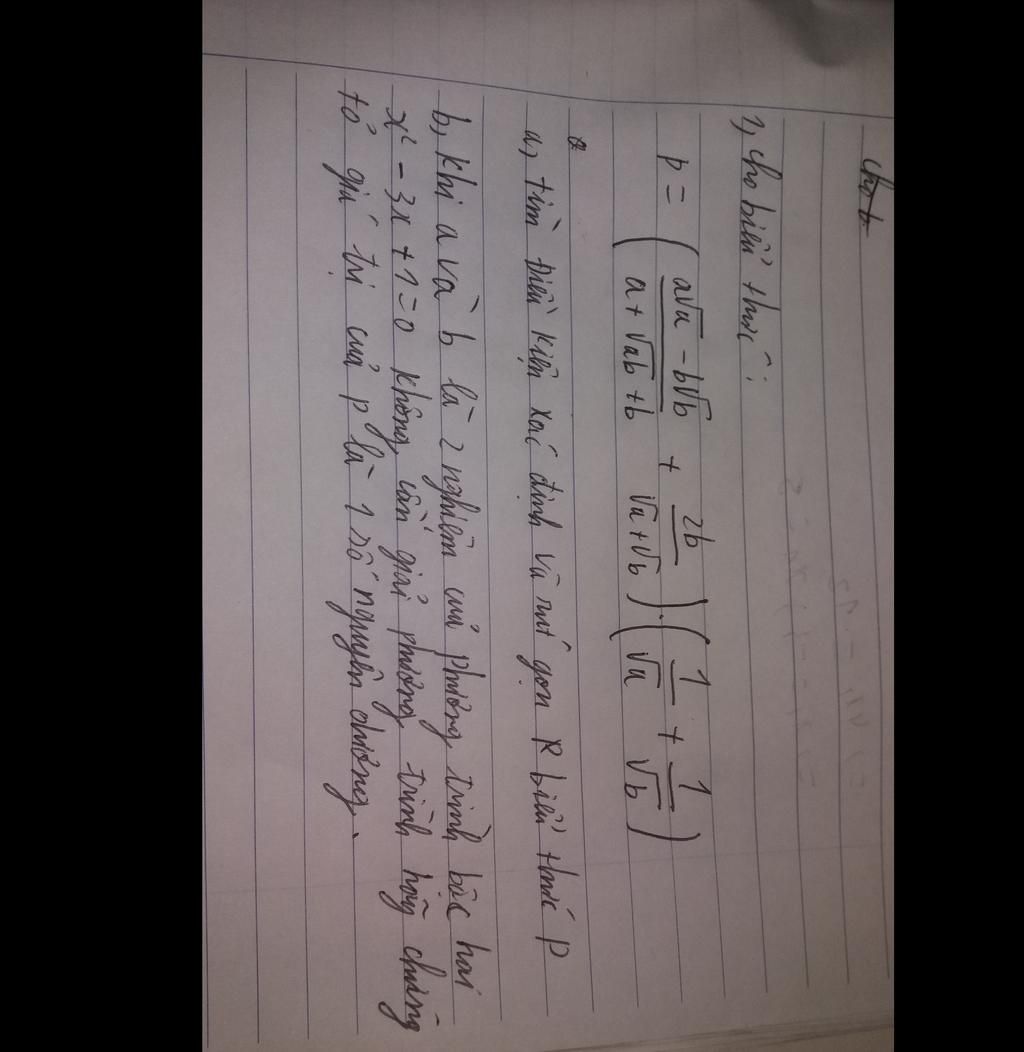 cho b
1, cho biểu thức :
P = ( a√a - b√b / a + √ab + b + 2b / √a + √b ) . ( 1 / √a + 1 / √b )
a, tìm điều kiện xác định và rút gọn R biểu thức P
b, khi a và b là 2 nghiệm của phương trình bậc hai
x² - 3x + 1 = 0 không cần giải phương trình hãy chứng
tỏ giá trị của P là 1 số nguyên dương.